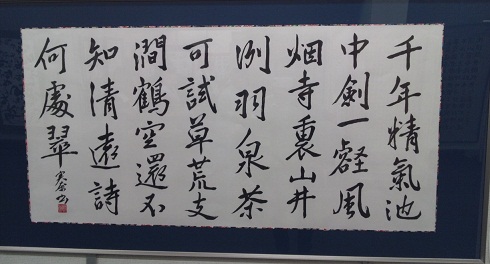 千年精氣池
中劍一壑風
烟寺裏山井
洌羽泉茶
可試草荒支
澗鶴空還不
知清遠詩
何處翠